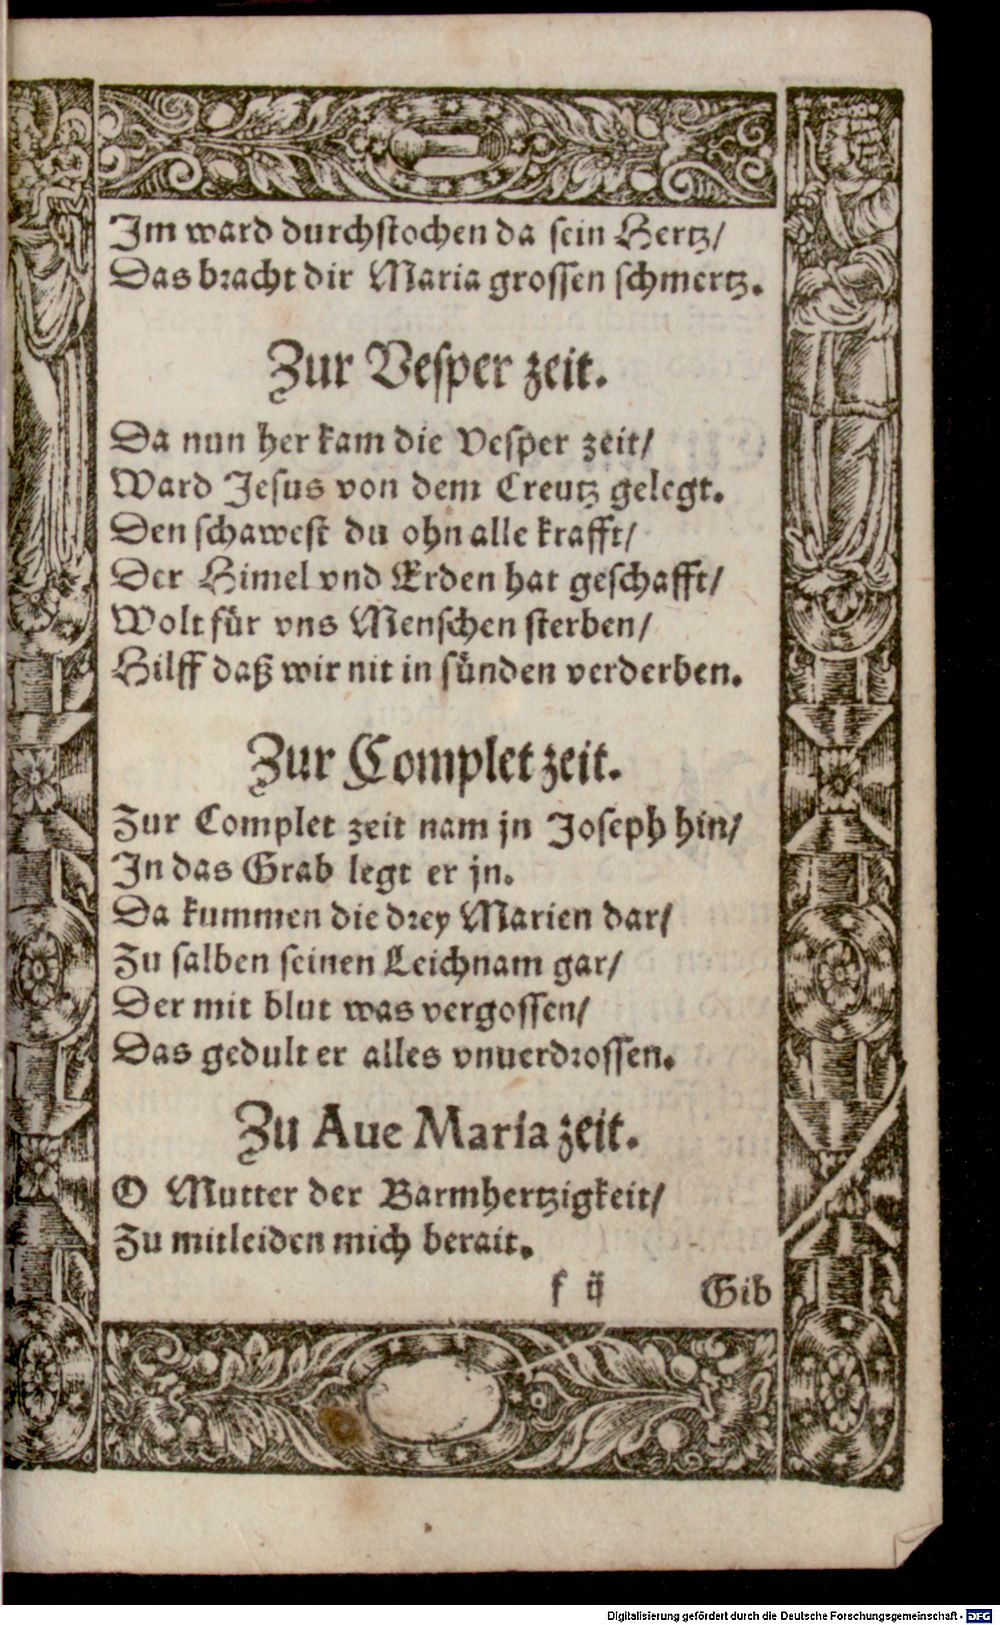 Im ward durchstochen da sein Hertz/
Das bracht dir Maria grossen schmertz.
Zur Vesper zeit.
Da nun her kam die Vesper zeit/
Ward Jesus von dem Creutz gelegt.
Den schawest du ohn alle krafft/
Der Himel vnd Erden hat geschafft/
Wolt für vns Menschen sterben/
Hilff daß wir nit in sünden verderben.
Zur Complet zeit.
Zur Complet zeit nam jn Joseph hin/
In das Grab legt er jn.
Da kummen die drey Marien dar/
Zu salben seinen Leichnam gar/
Der mit blut was vergossen/
Das gedult er alles vnuerdrossen.
Zu Aue Maria zeit.
O Mutter der Barmhertzigkeit/
Zu mitleiden mich berait.
f ij Gib
Digitalisierung gefördert durch die Deutsche Forschungsgemeinschaft - DFG